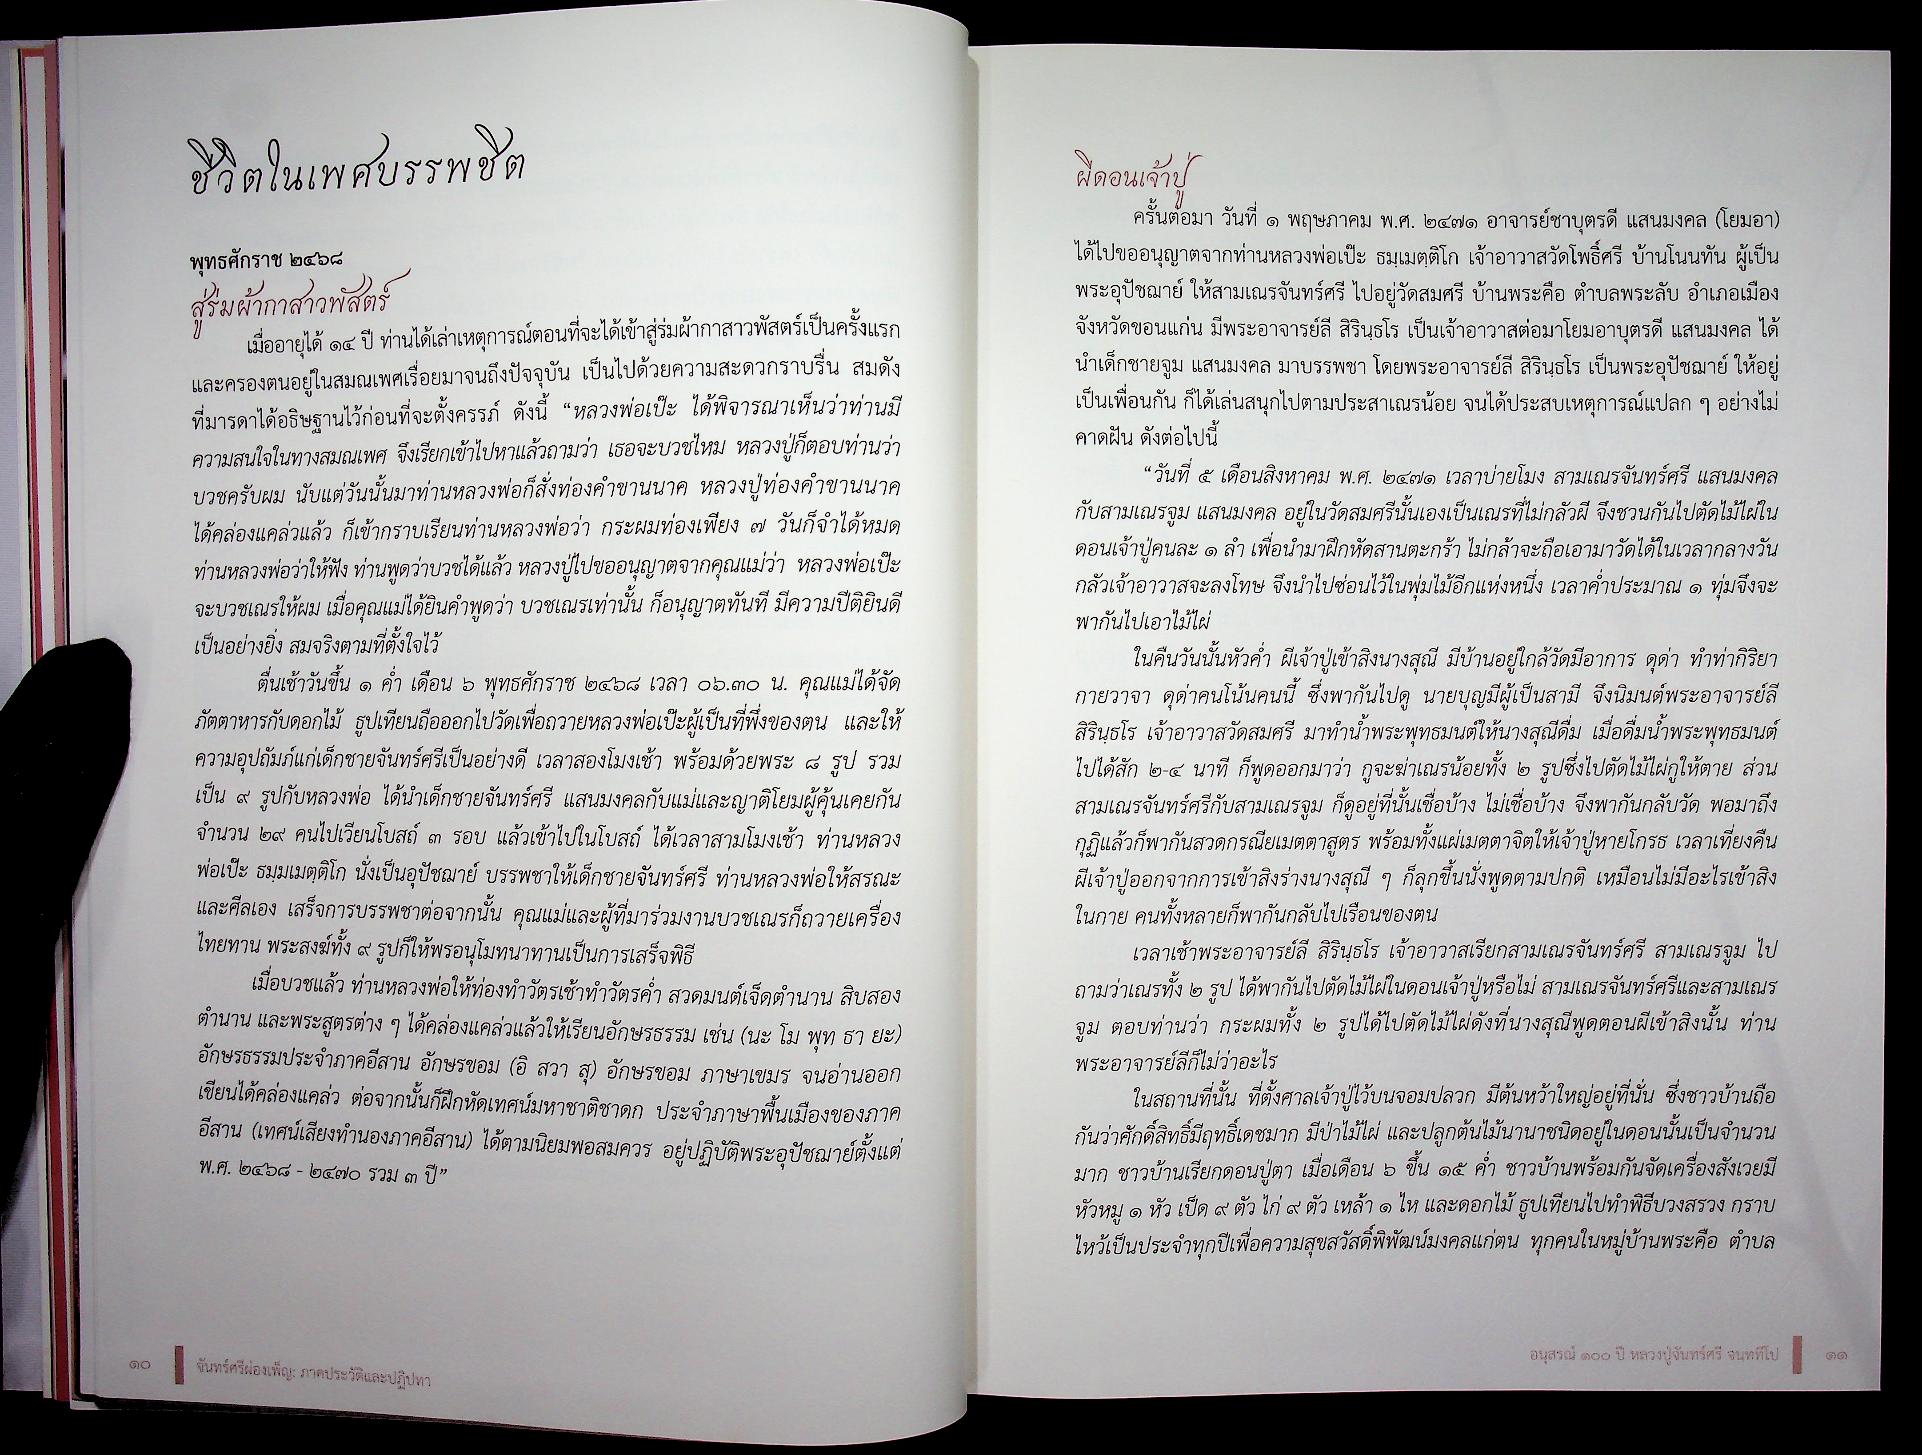 ชีวิตในเพศบรรพชิต
พุทธศักราช ๒๔๖๘
สู่ร่มผ้ากาสาวพัสตร์
เมื่ออายุได้ ๑๔ ปี ท่านได้เล่าเหตุการณ์ตอนที่จะได้เข้าสู่ร่มผ้ากาสาวพัสตร์เป็นครั้งแรก
และครองตนอยู่ในสมณเพศเรื่อยมาจนถึงปัจจุบัน เป็นไปด้วยความสะดวกราบรื่น สมดัง
ที่มารดาได้อธิษฐานไว้ก่อนที่จะตั้งครรภ์ ดังนี้ “หลวงพ่อเป๊ะ ได้พิจารณาเห็นว่าท่านมี
ความสนใจในทางสมณเพศ จึงเรียกเข้าไปหาแล้วถามว่า เธอจะบวชไหม หลวงปู่ก็ตอบท่านว่า
บวชครับผม นับแต่วันนั้นมาท่านหลวงพ่อก็สั่งท่องคำขานนาค หลวงปู่ท่องคำขานนาค
ได้คล่องแคล่วแล้ว ก็เข้ากราบเรียนท่านหลวงพ่อว่า กระผมท่องเพียง ๗ วันก็จำได้หมด
ท่านหลวงพ่อว่าให้ฟัง ท่านพูดว่าบวชได้แล้ว หลวงปู่ไปขออนุญาตจากคุณแม่ว่า หลวงพ่อเป๊ะ
จะบวชเณรให้ผม เมื่อคุณแม่ได้ยินคำพูดว่า บวชเณรเท่านั้น ก็อนุญาตทันที มีความปีติยินดี
เป็นอย่างยิ่ง สมจริงตามที่ตั้งใจไว้
ตื่นเช้าวันขึ้น ๑ ค่ำ เดือน ๖ พุทธศักราช ๒๔๖๘ เวลา ๐๖.๓๐ น. คุณแม่ได้จัด
ภัตตาหารกับดอกไม้ ธูปเทียนถือออกไปวัดเพื่อถวายหลวงพ่อเป๊ะผู้เป็นที่พึ่งของตน และให้
ความอุปถัมภ์แก่เด็กชายจันทร์ศรีเป็นอย่างดี เวลาสองโมงเช้า พร้อมด้วยพระ ๘ รูป รวม
เป็น ๙ รูปกับหลวงพ่อ ได้นำเด็กชายจันทร์ศรี แสนมงคลกับแม่และญาติโยมผู้คุ้นเคยกัน
จำนวน ๒๙ คนไปเวียนโบสถ์ ๓ รอบ แล้วเข้าไปในโบสถ์ ได้เวลาสามโมงเช้า ท่านหลวง
พ่อเป๊ะ ธมฺมเมตฺติโก นั่งเป็นอุปัชฌาย์ บรรพชาให้เด็กชายจันทร์ศรี ท่านหลวงพ่อให้สรณะ
และศีลเอง เสร็จการบรรพชาต่อจากนั้น คุณแม่และผู้ที่มาร่วมงานบวชเณรก็ถวายเครื่อง
ไทยทาน พระสงฆ์ทั้ง ๙ รูปก็ให้พรอนุโมทนาทานเป็นการเสร็จพิธี
เมื่อบวชแล้ว ท่านหลวงพ่อให้ท่องทำวัตรเช้าทำวัตรค่ำ สวดมนต์เจ็ดตำนาน สิบสอง
ตำนาน และพระสูตรต่าง ๆ ได้คล่องแคล่วแล้วให้เรียนอักษรธรรม เช่น (นะ โม พุท ธา ยะ)
อักษรธรรมประจำภาคอีสาน อักษรขอม (อิ สวา สุ) อักษรขอม ภาษาเขมร จนอ่านออก
เขียนได้คล่องแคล่ว ต่อจากนั้นก็ฝึกหัดเทศน์มหาชาติชาดก ประจำภาษาพื้นเมืองของภาค
อีสาน (เทศน์เสียงทำนองภาคอีสาน) ได้ตามนิยมพอสมควร อยู่ปฏิบัติพระอุปัชฌาย์ตั้งแต่
พ.ศ. ๒๔๖๘ - ๒๔๗๐ รวม ๓ ปี”
๑๐ จันทร์ศรีผ่องเพ็ญ: ภาคประวัติและปฏิปทา
ผีดอนเจ้าปู่
ครั้นต่อมา วันที่ ๑ พฤษภาคม พ.ศ. ๒๔๗๑ อาจารย์ชาบุตรดี แสนมงคล (โยมอา)
ได้ไปขออนุญาตจากท่านหลวงพ่อเป๊ะ ธมฺเมตฺติโก เจ้าอาวาสวัดโพธิ์ศรี บ้านโนนทัน ผู้เป็น
พระอุปัชฌาย์ ให้สามเณรจันทร์ศรี ไปอยู่วัดสมศรี บ้านพระคือ ตำบลพระลับ อำเภอเมือง
จังหวัดขอนแก่น มีพระอาจารย์ลี สิรินฺธโร เป็นเจ้าอาวาสต่อมาโยมอาบุตรดี แสนมงคล ได้
นำเด็กชายจูม แสนมงคล มาบรรพชา โดยพระอาจารย์ลี สิรินฺธโร เป็นพระอุปัชฌาย์ ให้อยู่
เป็นเพื่อนกัน ก็ได้เล่นสนุกไปตามประสาเณรน้อย จนได้ประสบเหตุการณ์แปลก ๆ อย่างไม่
คาดฝัน ดังต่อไปนี้
“วันที่ ๕ เดือนสิงหาคม พ.ศ. ๒๔๗๑ เวลาบ่ายโมง สามเณรจันทร์ศรี แสนมงคล
กับสามเณรจูม แสนมงคล อยู่ในวัดสมศรีนั้นเองเป็นเณรที่ไม่กลัวผี จึงชวนกันไปตัดไม้ไผ่ใน
ดอนเจ้าปู่คนละ ๑ ลำ เพื่อนำมาฝึกหัดสานตะกร้า ไม่กล้าจะถือเอามาวัดได้ในเวลากลางวัน
กลัวเจ้าอาวาสจะลงโทษ จึงนำไปซ่อนไว้ในพุ่มไม้อีกแห่งหนึ่ง เวลาค่ำประมาณ ๑ ทุ่มจึงจะ
พากันไปเอาไม้ไผ่
ในคืนวันนั้นหัวค่ำ ผีเจ้าปู่เข้าสิงนางสุณี มีบ้านอยู่ใกล้วัดมีอาการ ดุด่า ทำท่ากิริยา
กายวาจา ดุด่าคนโน้นคนนี้ ซึ่งพากันไปดู นายบุญมีผู้เป็นสามี จึงนิมนต์พระอาจารย์ลี
สิรินฺธโร เจ้าอาวาสวัดสมศรี มาทำน้ำพระพุทธมนต์ให้นางสุณีดื่ม เมื่อดื่มน้ำพระพุทธมนต์
ไปได้สัก ๒-๔ นาที ก็พูดออกมาว่า กูจะฆ่าเณรน้อยทั้ง ๒ รูปซึ่งไปตัดไม้ไผ่กูให้ตาย ส่วน
สามเณรจันทร์ศรีกับสามเณรจูม ก็ดูอยู่ที่นั้นเชื่อบ้าง ไม่เชื่อบ้าง จึงพากันกลับวัด พอมาถึง
กุฏิแล้วก็พากันสวดกรณียเมตตาสูตร พร้อมทั้งแผ่เมตตาจิตให้เจ้าปู่หายโกรธ เวลาเที่ยงคืน
ผีเจ้าปู่ออกจากการเข้าสิงร่างนางสุณี ๆ ก็ลุกขึ้นนั่งพูดตามปกติ เหมือนไม่มีอะไรเข้าสิง
ในกาย คนทั้งหลายก็พากันกลับไปเรือนของตน
เวลาเช้าพระอาจารย์ลี สิรินฺธโร เจ้าอาวาสเรียกสามเณรจันทร์ศรี สามเณรจูม ไป
ถามว่าเณรทั้ง ๒ รูป ได้พากันไปตัดไม้ไผ่ในดอนเจ้าปู่หรือไม่ สามเณรจันทร์ศรีและสามเณร
จูม ตอบท่านว่า กระผมทั้ง ๒ รูปได้ไปตัดไม้ไผ่ดังที่นางสุณีพูดตอนผีเข้าสิงนั้น ท่าน
พระอาจารย์ลีก็ไม่ว่าอะไร
ในสถานที่นั้น ที่ตั้งศาลเจ้าปู่ไว้บนจอมปลวก มีต้นหว้าใหญ่อยู่ที่นั่น ซึ่งชาวบ้านถือ
กันว่าศักดิ์สิทธิ์มีฤทธิ์เดชมาก มีป่าไม้ไผ่ และปลูกต้นไม้นานาชนิดอยู่ในดอนนั้นเป็นจำนวน
มาก ชาวบ้านเรียกดอนปู่ตา เมื่อเดือน ๖ ขึ้น ๑๕ ค่ำ ชาวบ้านพร้อมกันจัดเครื่องสังเวยมี
หัวหมู ๑ หัว เป็ด ๙ ตัว ไก่ ๙ ตัว เหล้า ๑ ไห และดอกไม้ ธูปเทียนไปทำพิธีบวงสรวง กราบ
ไหว้เป็นประจำทุกปีเพื่อความสุขสวัสดิ์พิพัฒน์มงคลแก่ตน ทุกคนในหมู่บ้านพระคือ ตำบล
อนุสรณ์ ๑๐๐ ปี หลวงปู่จันทร์ศรี จนททีโป ๑๑